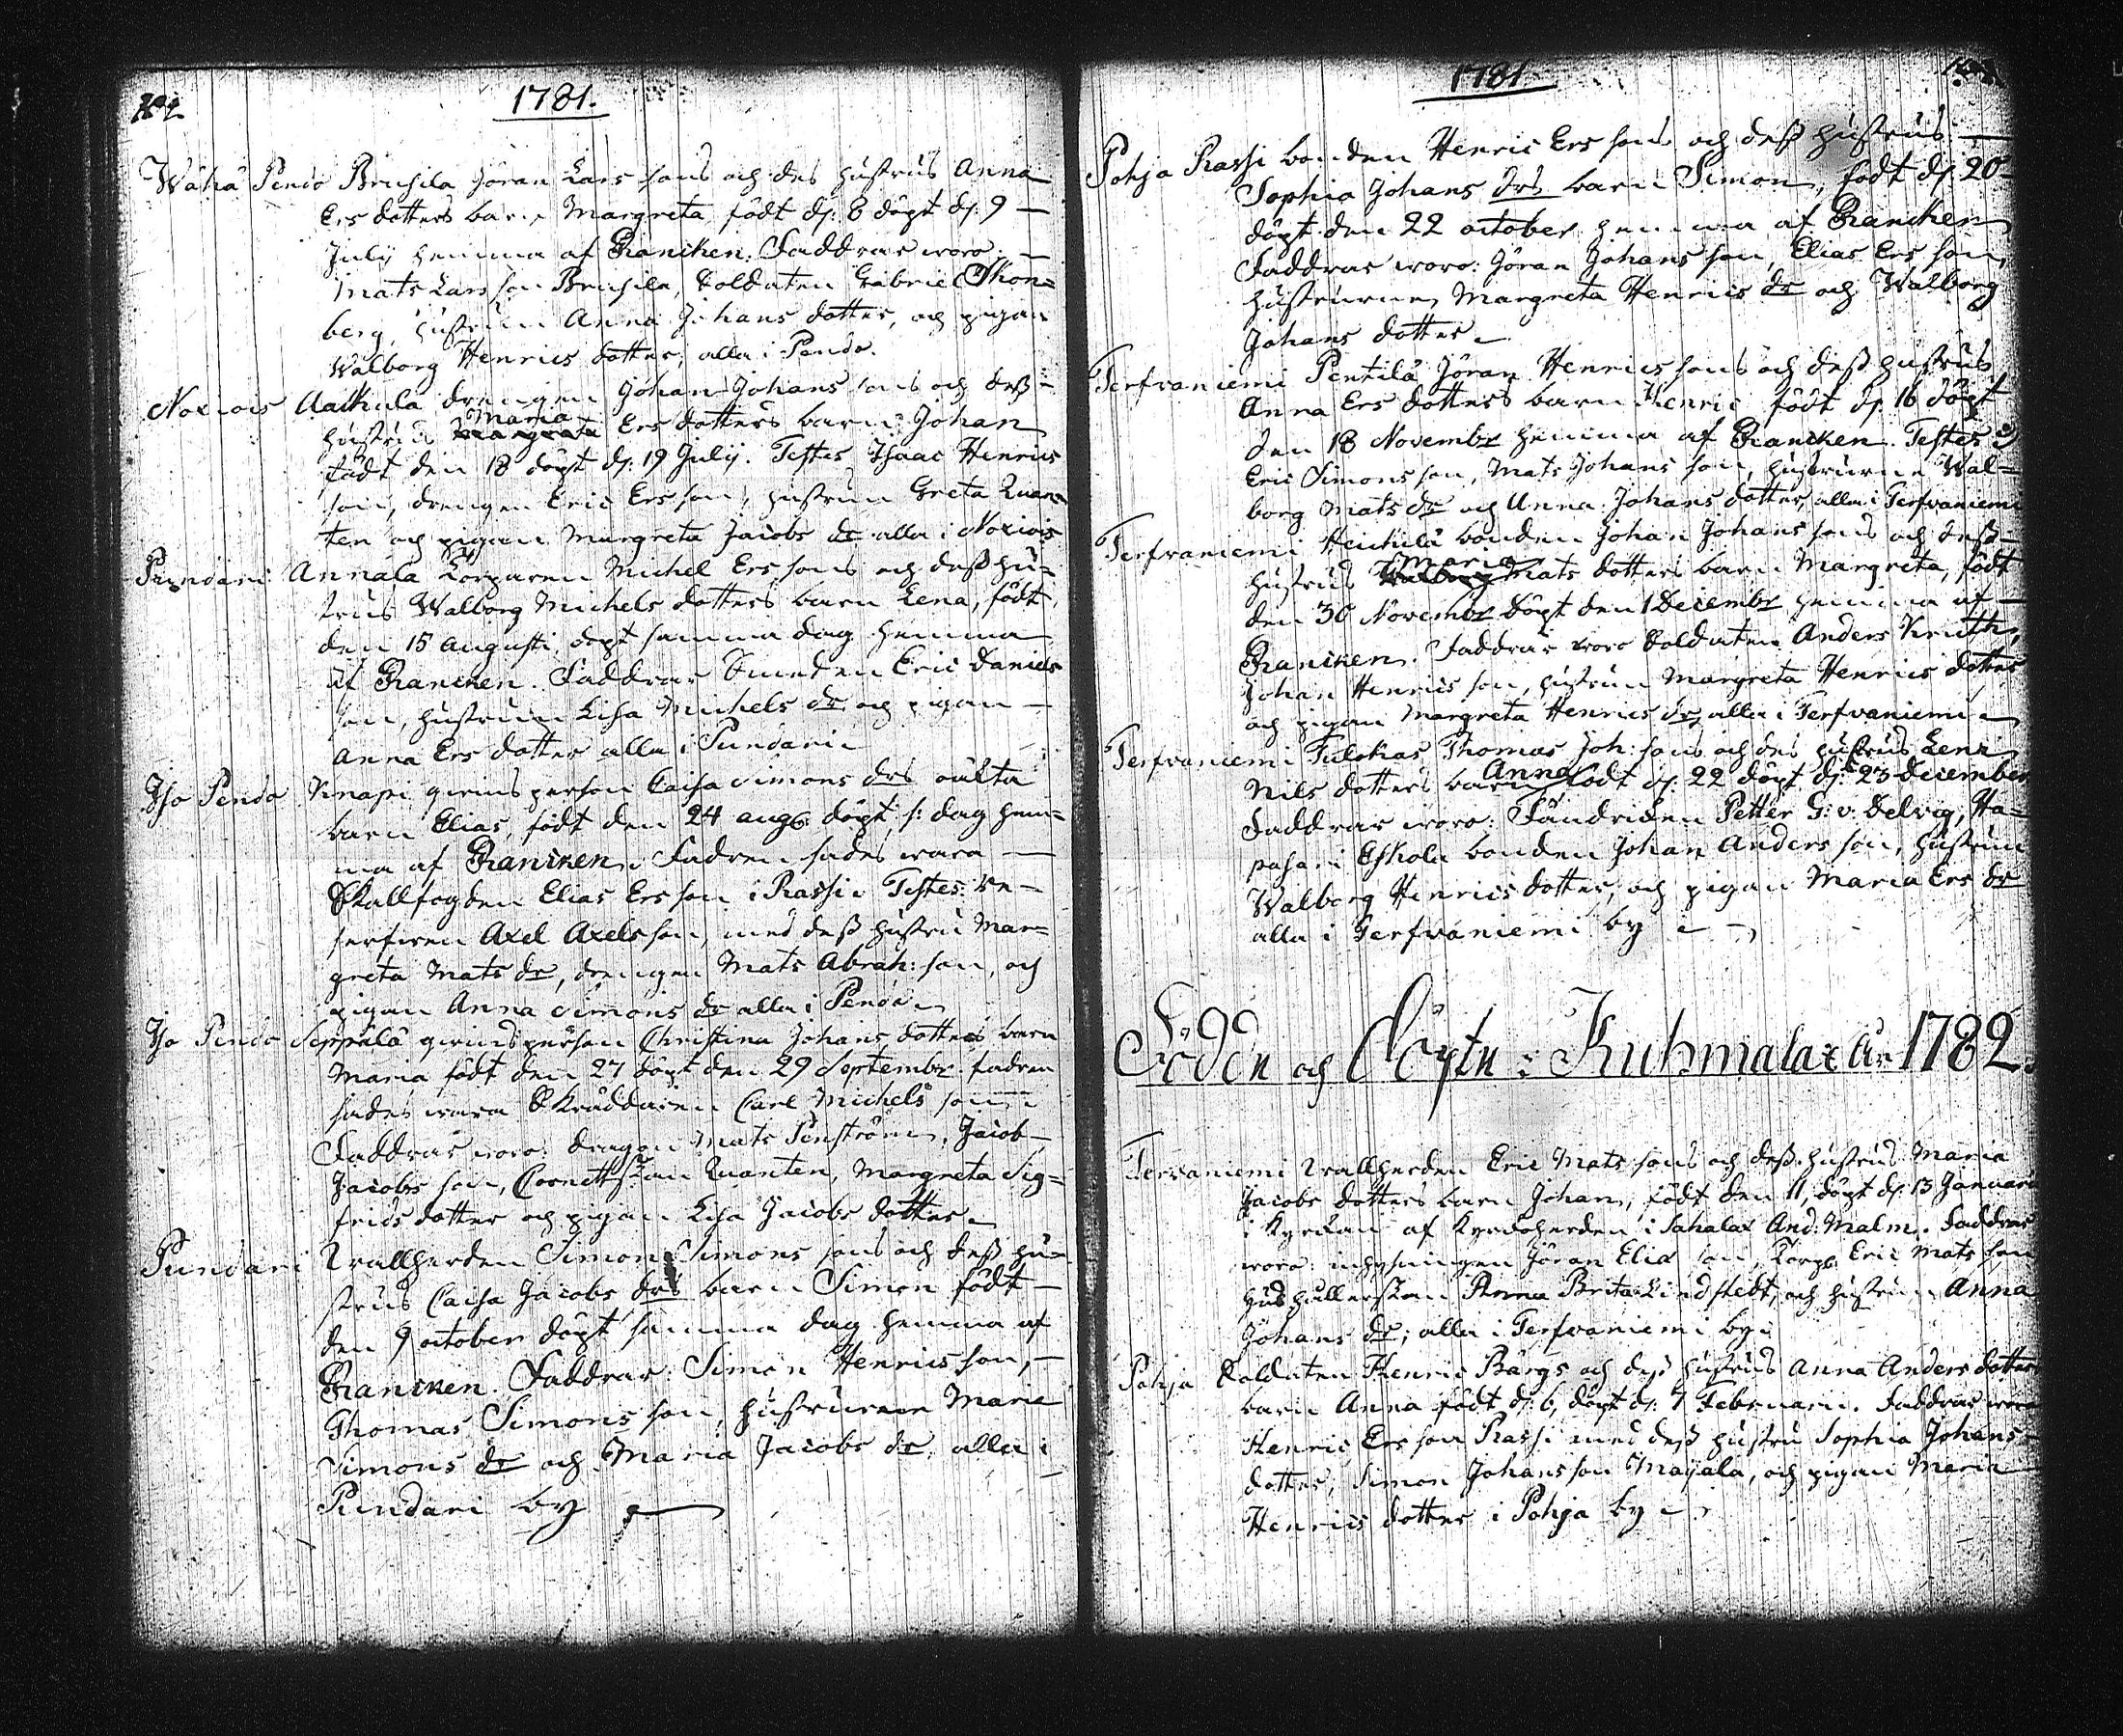 1781.
Wähä Pendo Brusila Jöran Lars sons och des hustrus Anna
Ers dotters barn Margreta födt d: 8 döpt d: 9
July hemma af Prancken. Faddrar woro:
Mats Lars son Brusila, Soldaten Gabriel Thon=
berg, hustrun Anna Johans dotter, och pigan
Walborg Henrics dotter, alla i Pendo.
Noxiois Aakula drengen Johan Johans sons och dess
hustrus Maria Ers dotters barn Johan
födt den 18 döpt d: 19 July. Testes Isaac Henrics
son, drengen Eric Ers son, hustrun Greta Quan=
ten och pigan Margreta Jacobs dr alla i Noxiois
Pundari Annala Torparen Michel Ers sons och dess hu=
strus Walborg Michels dotters barn Lena, födt
den 15 augusti, döpt samma dag hemma
af Prancken. Faddrar Smeden Eric Daniels
son, hustrun Lisa Michels dr och pigan
Anna Ers dotter alla i Pundari
Iso Pendo Knapi qvins person Caisa Simons drs oäkta
barn Elias, födt den 24 aug: döpt s: dag hem=
ma af Prancken. Fadren sades wara
Skallfogden Elias Ers son i Rassi. Testes: Re=
serfwen Axel Axels son, med dess hustru Mar=
greta Mats dr, drengen Mats Abrah: son, och
pigan Anna Simons dr alla i Pendo
Iso Pendo Seppälä qvinsperson Christina Johans dotters barn
Maria födt den 27 döpt den 29 Septembr. fadren
sades wara Skräddaren Carl Michels son
Faddrar woro: dragon Mats Penström, Jacob
Jacobs son, Cornettskan Quanten, Margreta Sig=
frids dotter och pigan Lisa Jacobs dotter
Pundari Wallherden Simon Simons sons och dess hu=
strus Caisa Jacobs drs barn Simon födt
den 9 october döpt samma dag hemma af
Prancken. Faddrar: Simon Henrics son,
Thomas Simons son, hustrurne Maria
Simons dr och Maria Jacobs dr alla i
Pundari by
1781
Pohja Rassi bonden Henric Ers sons och dess hustrus
Sophia Johans drs barn Simon, födt d: 20
döpt den 22 october hemma af Prancken
Faddrar woro: Jöran Johans son, Elias Ers son,
hustrurne Margreta Henrics dr och Walborg
Johans dotter
Terfvaniemi Pentilä Jöran Henrics sons och dess hustrus
Anna Ers dotters barn Henric födt d: 16 döpt
den 18 Novembr hemma af Prancken. Testes
Eric Simons son, Mats Johans son, hustrurne Wal=
borg Mats dr och Anna Johans dotter, alla i Terfvaniemi
Terfvaniemi Heickilä bonden Johan Johans sons och dess
hustrus Maria Mats dotters barn Margreta, födt
den 30 Novembr döpt den 1 Decembr hemma af
Prancken. Faddrar woro Soldaten Anders Knuth,
Johan Henrics son, hustrun Margreta Henrics dotter
och pigan Margreta Henrics dr, alla i Terfvaniemi
Terfvaniemi Tulokas Thomas Joh: sons och des hustrus Lena
Nils dotters barn Anna födt d: 22 döpt d: 23 December
Faddrar woro: Fändriken Petter G: v: Delvig, Ha=
pasari Eskola bonden Johan Anders son, hustrun
Walborg Henrics dotter, och pigan Maria Ers dr
alla i Terfvaniemi by
Födde och Döpte i Kuhmalax År 1782.
Tervaniemi Wallherden Eric Mats sons och dess hustrus Maria
Jacobs dotters barn Johan, födt den 11, döpt d: 13 Januari
i Kyrckan af Kyrckoherden i Sahalax And: Malm. Faddrar
woro: inhysingen Jöran Elia son, Torp: Eric Mats son
hushållerskan Anna Brita Lindstedt, och hustrun Anna
Johans dr; alla i Terfvaniemi by
Pohja Soldaten Henric Bärgs och dess hustrus Anna Anders dotters
barn Anna födt d: 6, döpt d: 7 Februari. Faddrar woro
Henric Ers son Rassi med dess hustru Sophia Johans
dotter, Simon Johans son Mayala, och pigan Maria
Henrics dotter i Pohja by